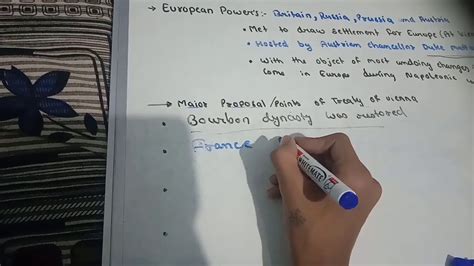 → European Powers:- Britain, Russia, Prussia and Austria
• Met to draw settlement for Europe (At
• Hosted by Austrian Chancellor Duke
• With the object of most undoing changes
come in Europe during Napoleonic
→ Major Proposal/Points of Treaty of Vienna
• Bourbon dynasty was restored
• France
WHITEMATE